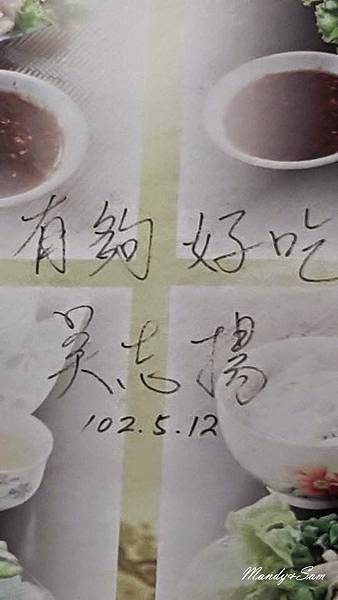 有夠好吃
吳志揚
102.5.12
Mandy&Sam